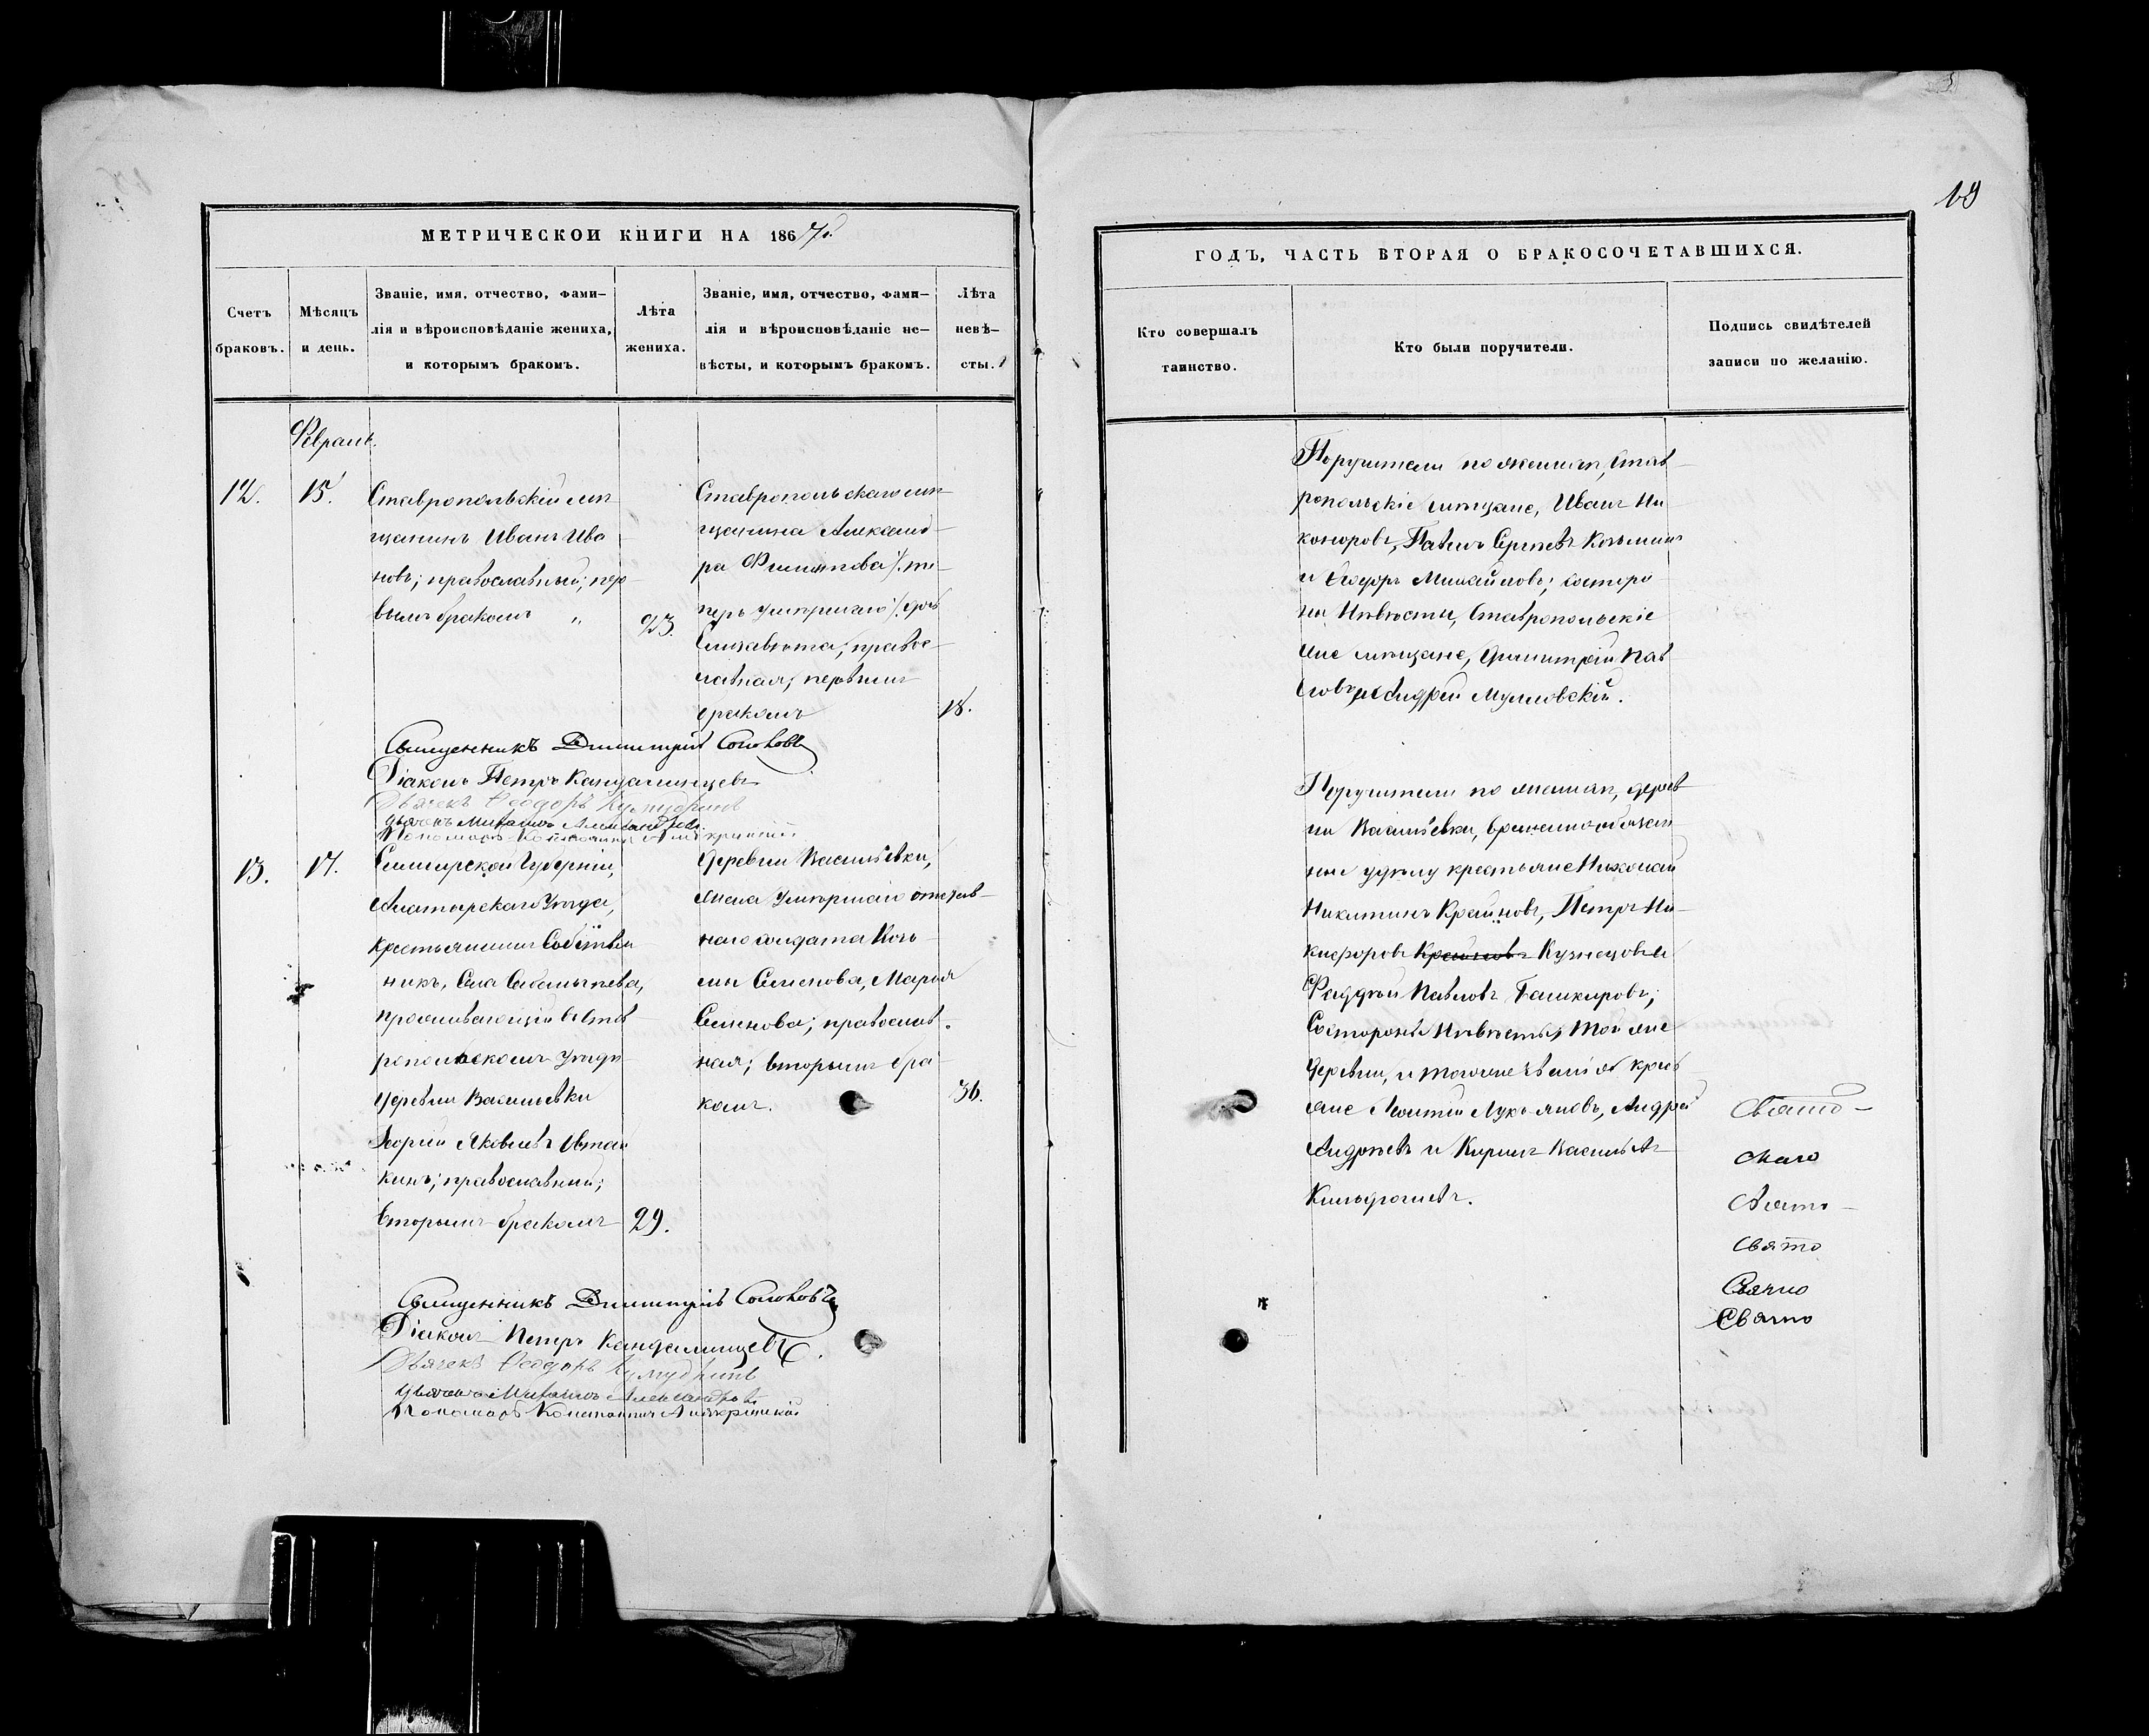 19
МЕТРИЧЕСКОЙ КНИГИ НА 1867
Счетъ
браковъ.
Мѣсяцъ
и день.
Званіе, имя, отчество, фами-
лія и вѣроисповѣданіе жениха,
и которымъ бракомъ.
Лѣта
жениха.
Званіе, имя, отчество, фами-
лія и вѣроисповѣданіе не-
вѣсты, и которымъ бракомъ.
Лѣта
невѣ-
сты.
Февраль.
12.
15.
Ставропольскій мѣ-
щанинъ Иванъ Ива
новъ; православный; пер
вымъ бракомъ "
23.
Ставропольскаго мѣ-
щанина Александ-
ра Филиппова /: те-
перь умершаго :/ дочь
Елизавета, правос-
лавная; первымъ
бракомъ
18.
Священникъ Димитрій Соловьевъ
Діаконъ Петръ Кандалинцевъ
Дьячекъ Ѳеодоръ
Дьячекъ Михаилъ Александровъ
Пономарь Константинъ
13.
17.
Симбирской Губерніи,
Алатырскаго Уѣзда,
крестьянинъ Собствен
никъ, Села Сабанчѣева,
проживающій въ Став
ропольскомъ Уѣздѣ
деревни Васильевки
Георгій Яковлевъ
кинъ; православный;
вторымъ бракомъ
29.
Деревни Васильевки,
жена умершаго отстав-
наго солдата Козь-
мы Семенова, Марья
Семенова; православ-
ная; вторымъ бра
комъ.
36.
Священникъ Димитрій Соловьевъ
Діаконъ Петръ Кандалинцевъ.
Дьячекъ Ѳеодоръ
Дьячекъ Михаилъ Александровъ
Пономарь Константинъ
ГОДЪ, ЧАСТЬ ВТОРАЯ О БРАКОСОЧЕТАВШИХСЯ.
Кто совершалъ
таинство.
Кто были поручители.
Подпись свидѣтелей
записи по желанію.
Поручители по женихѣ, Став-
ропольскіе мѣщане, Иванъ Ни-
каноровъ, Павелъ Сергѣевъ Козьминъ
и Ѳеодоръ Михайловъ; со сторо
ны Невѣсты, Ставропольскіе
же мѣщане, Димитрій Пав
ловъ и Андрей Мулловскій.
Поручители по женихѣ, дерев
ни Васильевки, временно обязан
ные удѣлу крестьяне Николай
Никитинъ Крайновъ, Петръ Ни-
кифоровъ Крайновъ Кузнецовъ и
Фаддей Павловъ Башкировъ;
Со стороны Невѣсты, той же
деревни, и того же званія крес
яне Леонтій Лукьяновъ, Андрей
Андреевъ и Кириллъ Васильевъ